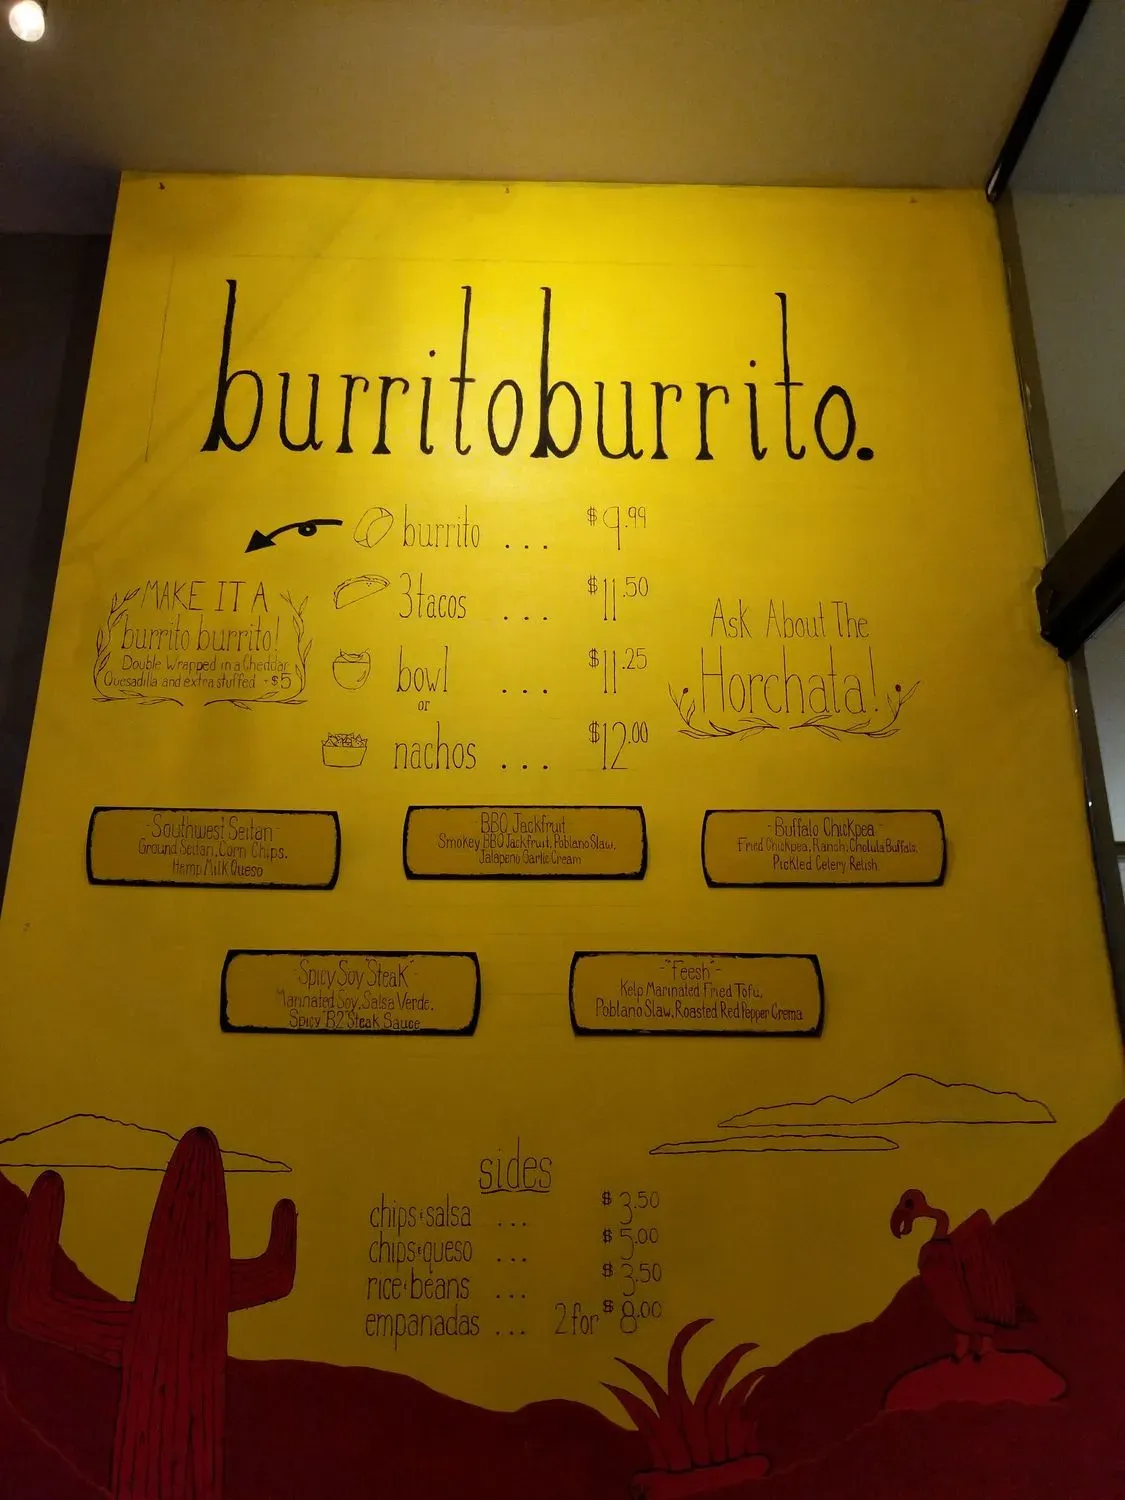 burritoburrito.
burrito ... $9.99
3 tacos ... $11.50
bowl ... $11.25
or
nachos ... $12.00
MAKE IT A
burrito burrito!
Double Wrapped in a Cheddar
Quesadilla and extra stuffed -$5
Ask About The
Horchata!
-Southwest Seitan-
Ground Seitan, Corn Chips,
Hemp Milk Queso
-BBQ Jackfruit-
Smokey BBQ Jackfruit, Poblano Slaw,
Jalapeno Garlic Cream
-Buffalo Chickpea-
Fried Chickpea, Ranch, Cholula Buffalo,
Pickled Celery Relish
-Spicy Soy "Steak"-
Marinated Soy, Salsa Verde,
Spicy "B2" Steak Sauce
-"Feesh"-
Kelp Marinated Fried Tofu,
Poblano Slaw, Roasted Red Pepper Crema
sides
chips & salsa ... $3.50
chips & queso ... $5.00
rice & beans ... $3.50
empanadas ... 2 for $8.00